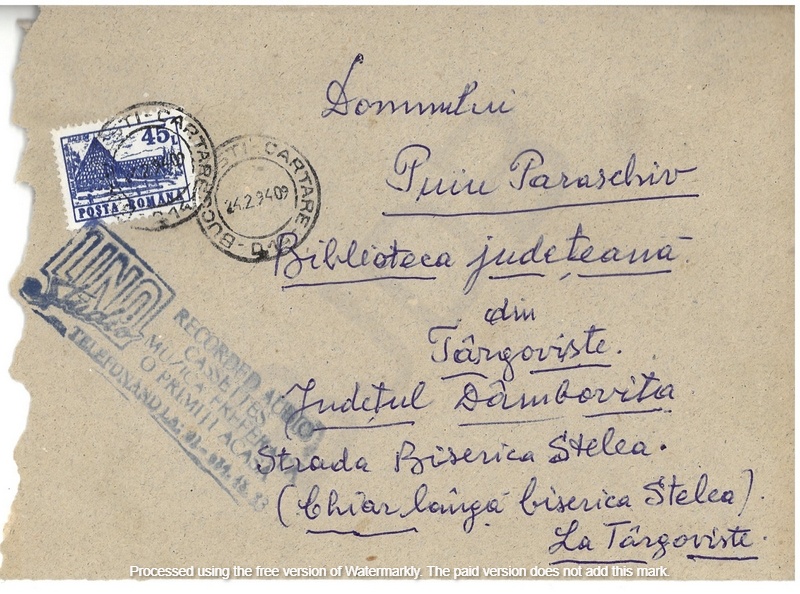 Domnului
Puiu Paraschiv
Biblioteca județeană
din
Târgoviște.
Județul Dâmbovița
Strada Biserica Stelea.
(Chiar lângă biserica Stelea).
La Târgoviște.
45 L
POSTA ROMÂNA
TI-CARTARE
STI-CARTARE
24.2.94 09
BUCU
UNO
Studio
RECORDED AUDIO
CASSETTES
MUZICA PREFER
O PRIMITI ACASA
TELEFONAND LA:
Processed using the free version of Watermarkly. The paid version does not add this mark.